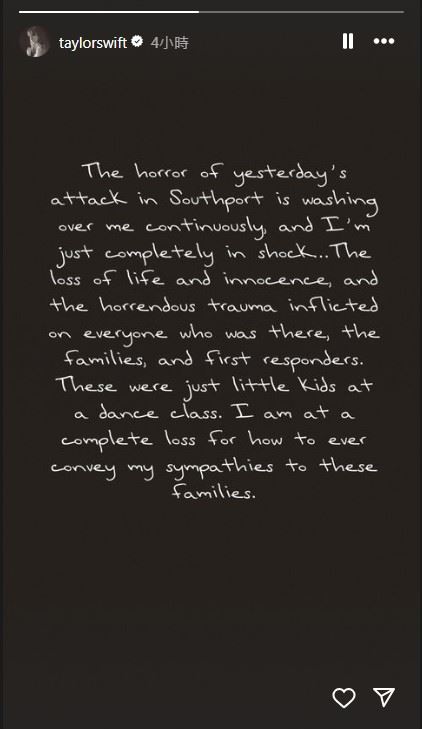 taylorswift 4小時
The horror of yesterday's
attack in Southport is washing
over me continuously, and I'm
just completely in shock...The
loss of life and innocence, and
the horrendous trauma inflicted
on everyone who was there, the
families, and first responders.
These were just little kids at
a dance class. I am at a
complete loss for how to ever
convey my sympathies to these
families.